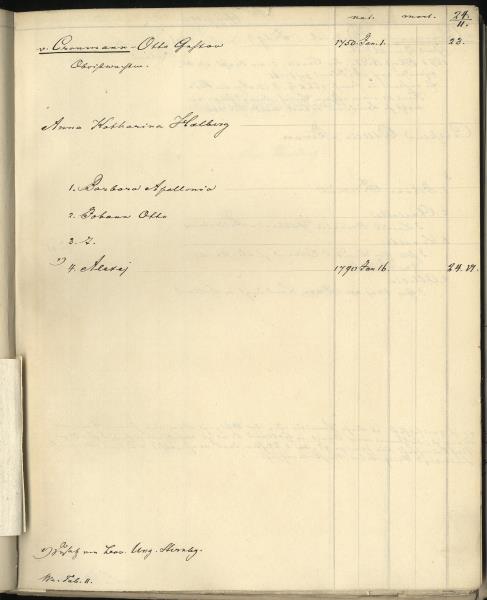 nat. mort. 24.
11.
v. Cronmann - Otto Gustav 1750 Jan. 1. 23.
Obristwachtm.
Anna Katharina Helberg
1. Barbara Apollonia
2. Johann Otto
3. J.
*) 4. Alexej 1790 Jan 16. 24. VI.
*) von Ung. Sternbg.
Tab. 11.